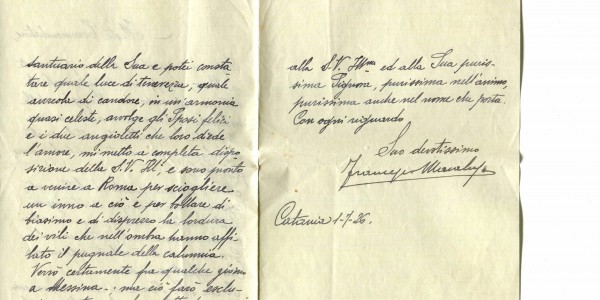 santuario della Sua e potei consta
tare quale luce di tenerezza, quale
aureola di candore, in un'armonia
quasi celeste, avvolge gli Sposi felici
e i due angioletti che loro diede
l'amore, mi metto a completa dispo
sizione della S.V. Ill., e sono pronto
a venire a Roma per sciogliere
un inno a ciò e per bollare di
biasimo e di disprezzo la lordura
dei vili che nell'ombra hanno affi
lato il pugnale della calunnia.
Verrò certamente fra qualche giorno
a Messina, ma ciò farò esclu
alla S.V. Ill.ma ed alla Sua puris
sima Signora, purissima nell'animo,
purissima anche nel nome che porta.
Con ogni riguardo
Suo devotissimo
Francesco
Catania 1-7-26.